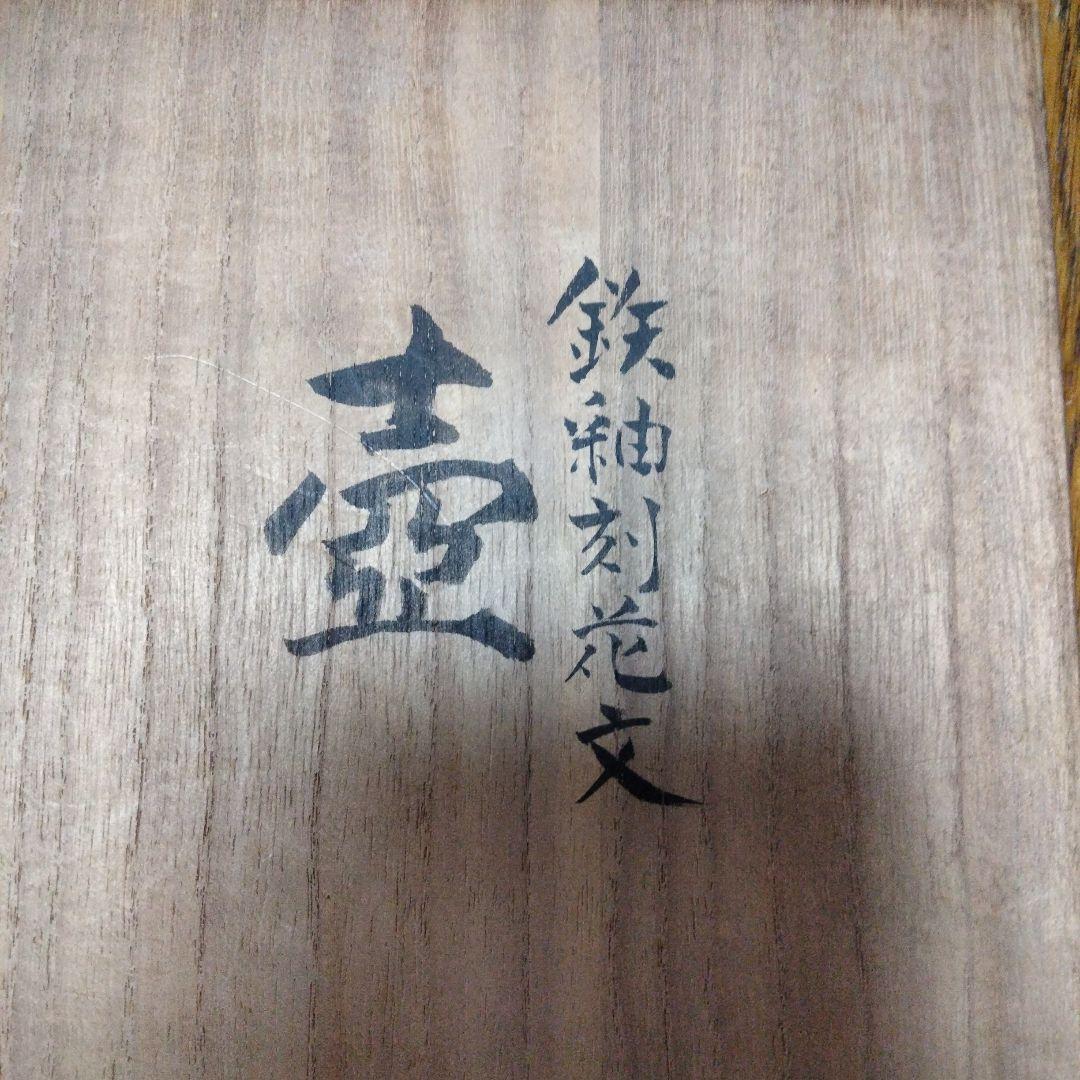 鉄釉刻花文
壺